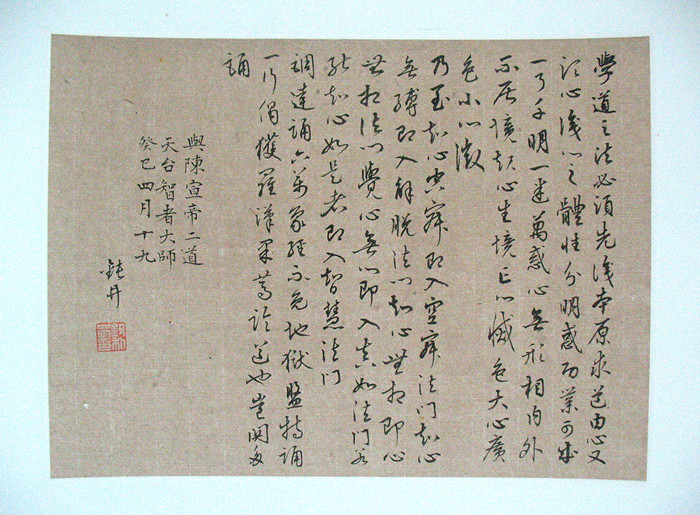 學道之法必須先識本原求道由心又
須心識心之體性分明惑功業可成
一了千明一迷萬惑心無形相內外
不居境起心生境亡心滅色大心廣
色小心微
乃至知心空寂即入空寂法門知心
無縛即入解脫法門知心無相即心
無相法門覺心無心即入真如法門若
能知心如是者即入智慧法門
調達誦六萬象經不免地獄盤特誦
一行偈獲羅漢果篤論道也豈関多
誦
與陳宣帝二道
天台智者大師
癸巳四月十九